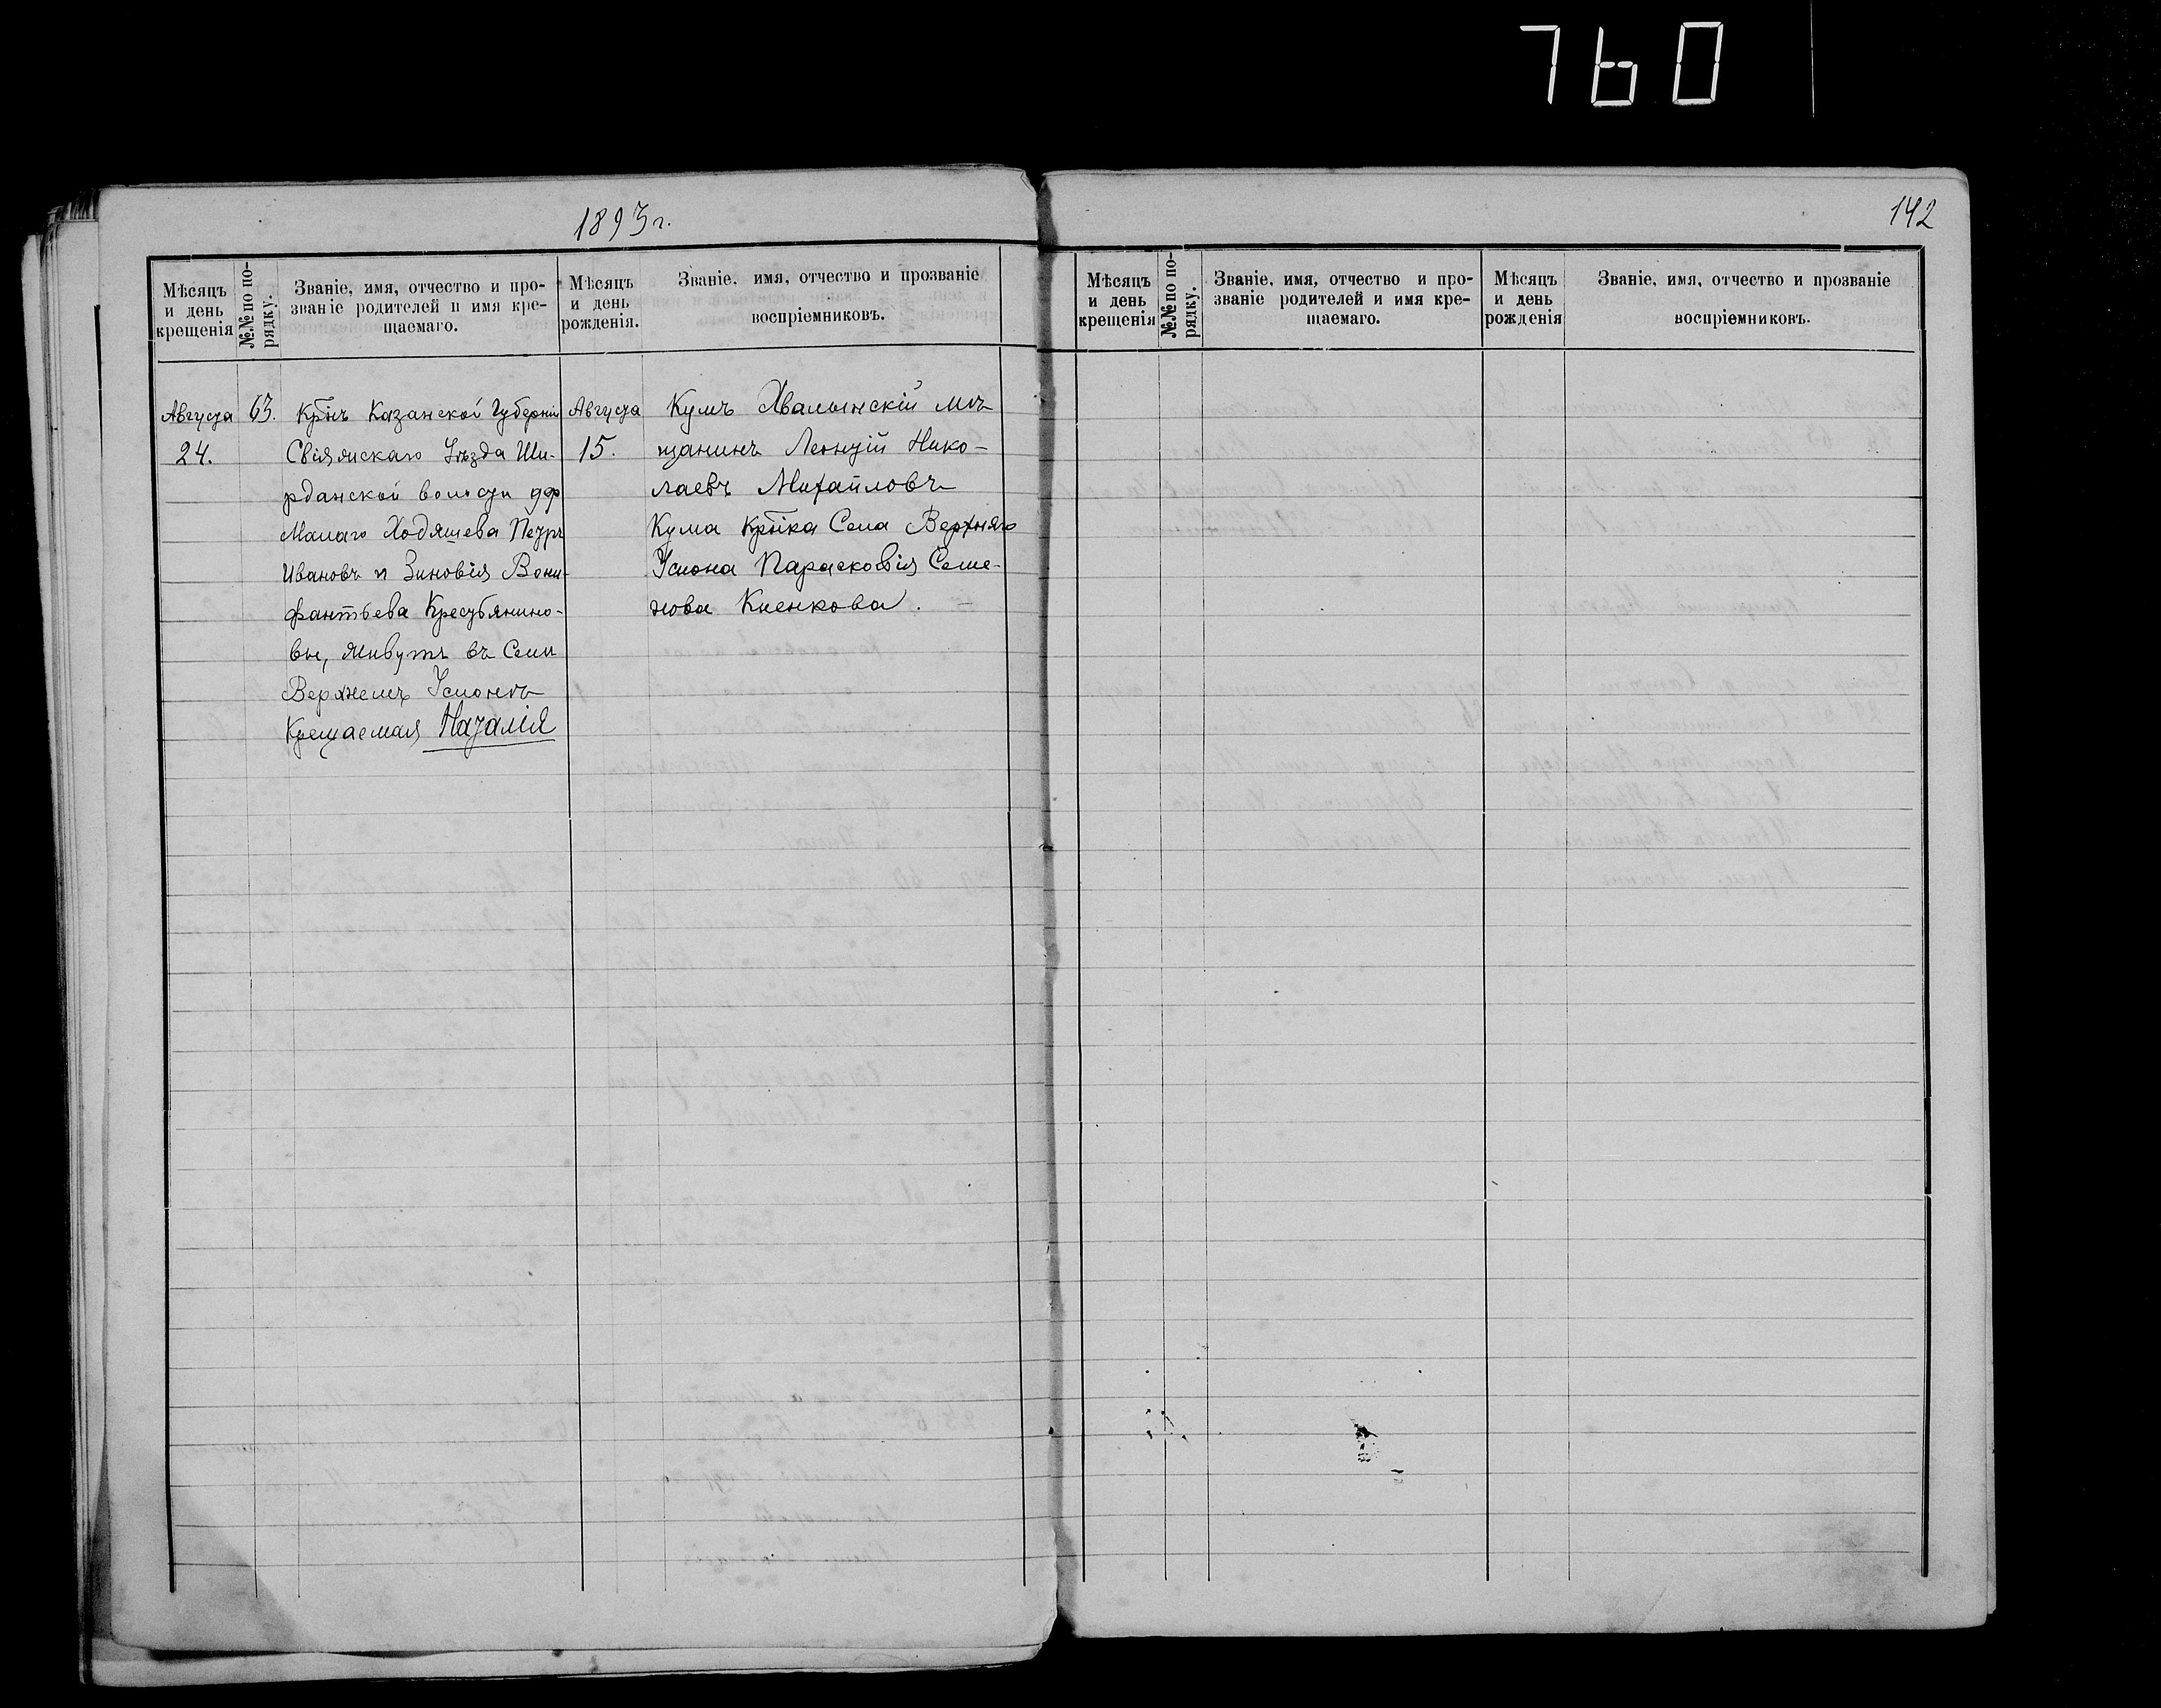 760
1893 г.
142
Мѣсяцъ и день крещенія
№№ по порядку.
Званіе, имя, отчество и про-
званіе родителей и имя кре-
щаемаго.
Мѣсяцъ и день рожденія.
Званіе, имя, отчество и прозваніе
воспріемниковъ.
Августа
24.
63.
Крнъ Казанской Губерніи
Свіяжскаго Уѣзда Ши-
рданской волости дер
Малаго Ходяшева Петръ
Ивановъ и Зиновія Вони-
фантьева Крестьянино-
вы, живутъ въ Селѣ
Верхнемъ Услонѣ
Крещаемая Наталія
Августа
15.
Кумъ Хвалынскій мѣ-
щанинъ Леонтій Нико-
лаевъ Михайловъ
Кума Крнка Села Верхняго
Услона Парасковія Семе-
нова
Мѣсяцъ и день крещенія
№№ по порядку.
Званіе, имя, отчество и про-
званіе родителей и имя кре-
щаемаго.
Мѣсяцъ и день рожденія
Званіе, имя, отчество и прозваніе
воспріемниковъ.